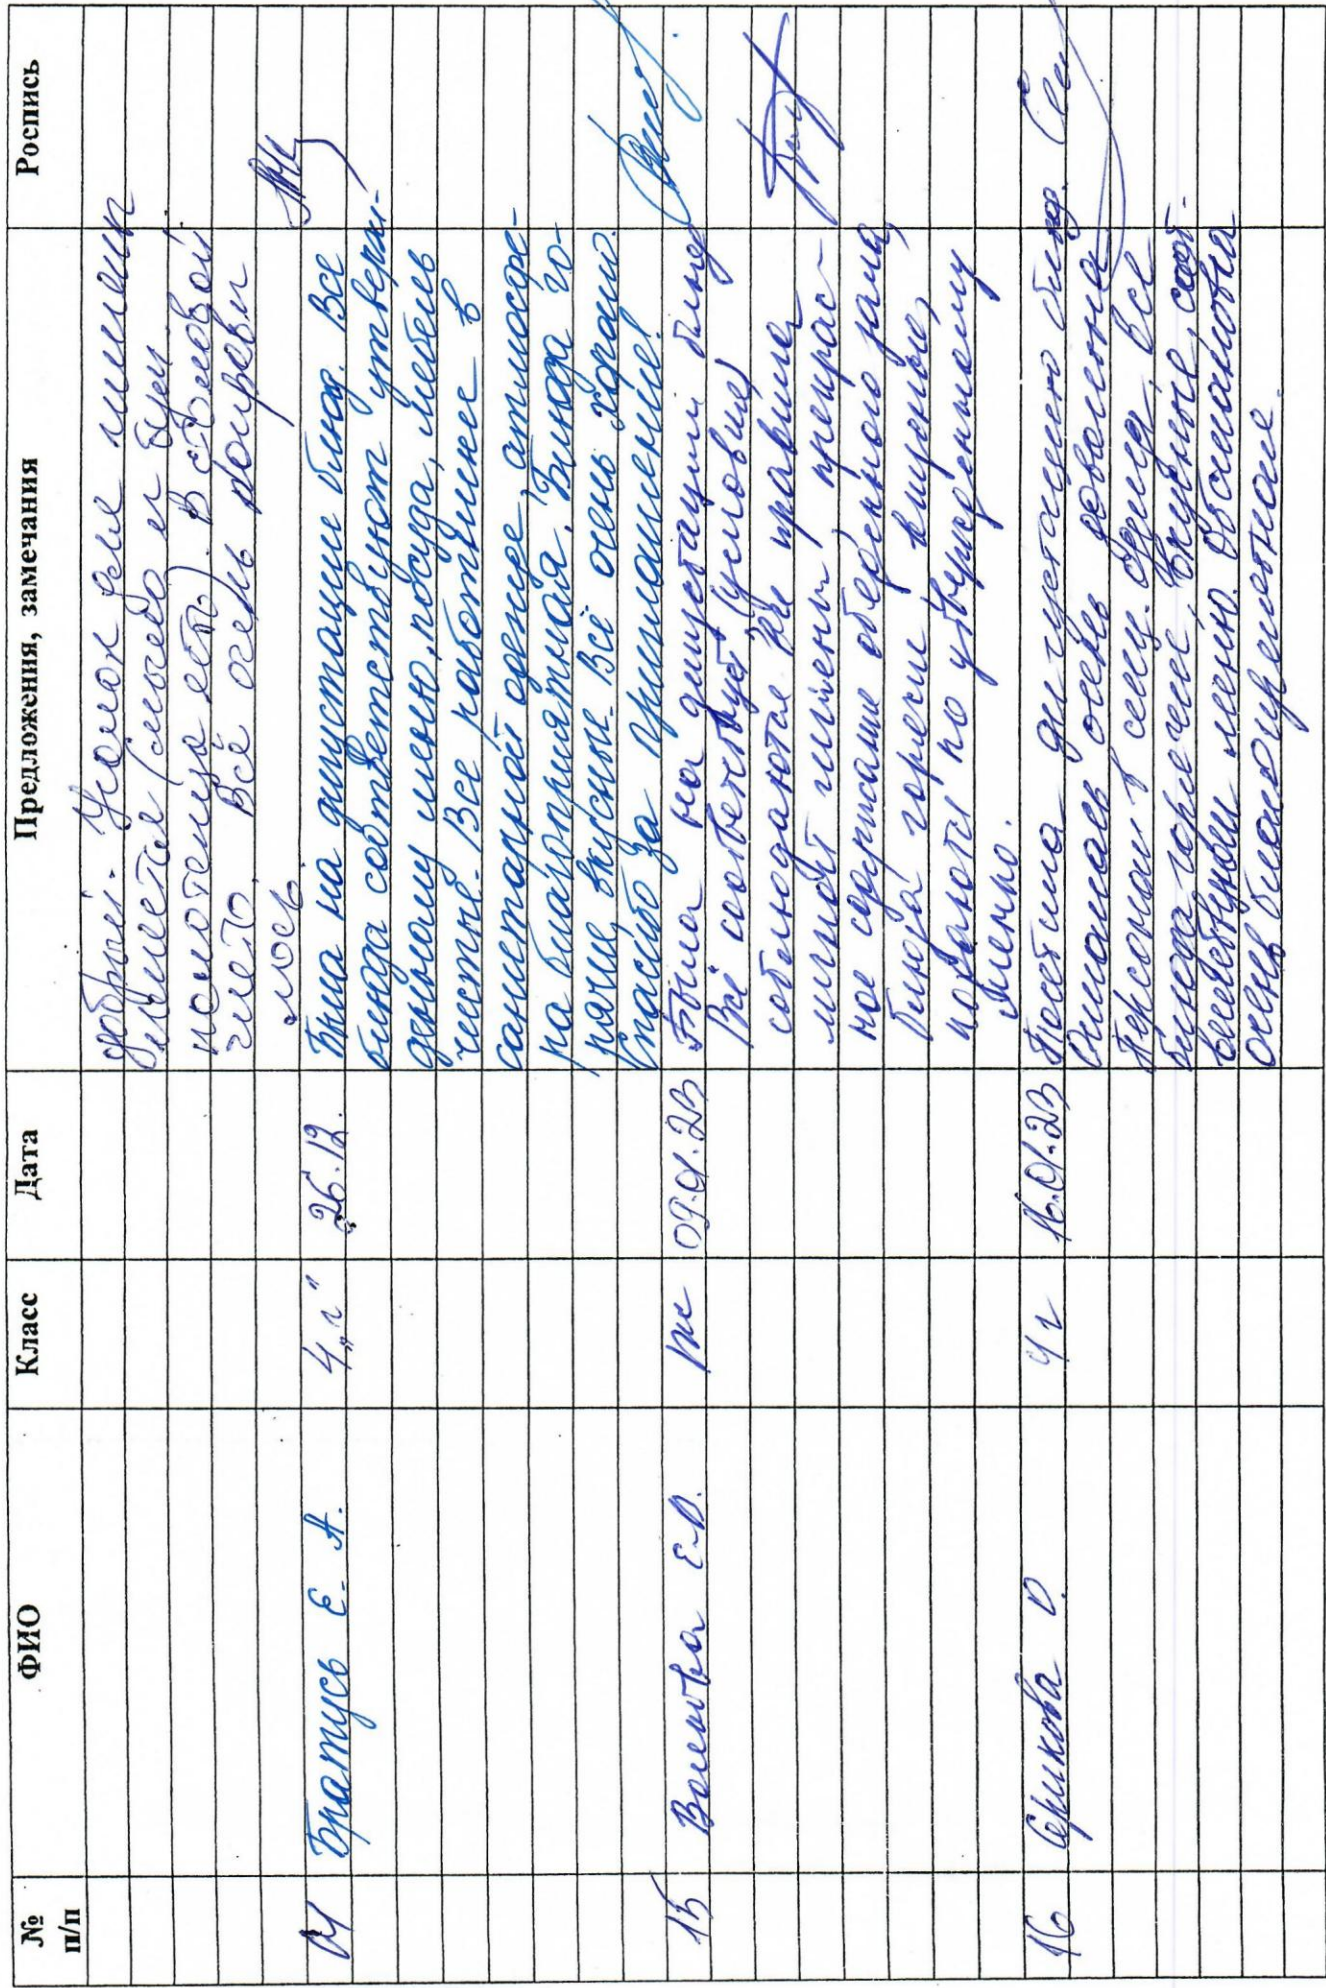 № п/п ФИО Класс Дата Предложения, замечания Роспись
добрый. Уголок для мытья рук
имеется (мыло и бум.
полотенца есть). В столовой
чисто. Всё очень понрави
лось.
14 Братусь Е. А. 4 „г" 26.12. Была на дигустации блюд. Все
блюда соответствуют утвержд-
дённому меню, посуда, мебель
чистые. Все работники в
санитарной одежде, атмосфе-
ра благоприятная. Блюда го-
рячие, вкусные. Всё очень хорошо.
Спасибо за приглашение!
15 Е.В. 1ж 09.01.23 Была на дигустации блюд
Всё соответствует (условие)
соблюдаются все правила
личной гигиены, прекрас-
ное содержание обеденного зала,
блюда горячие вкусные,
подаются по утвержденному
меню.
16 Серикова О. 4г 16.01.23 Посетила дигустацию блюд.
Осталась очень довольна.
Персонал в спец. одежде. Все
блюда горячие, вкусные, соот-
ветствуют меню. Обстановка
очень благоприятная.